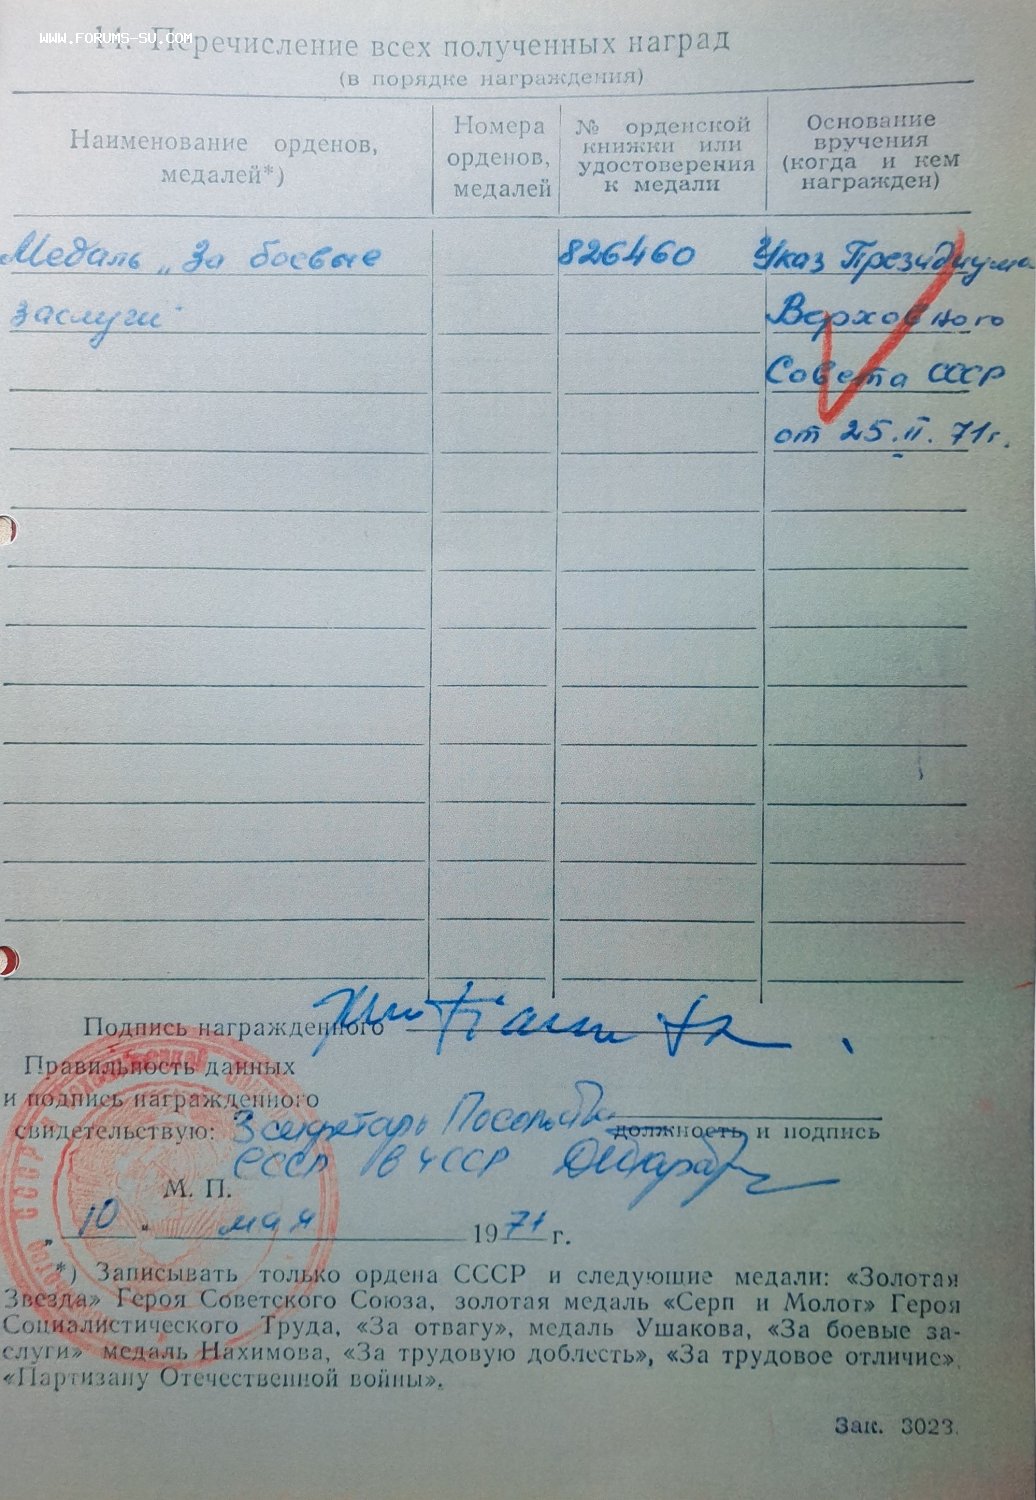 WWW.FORUMS-SU.COM
14. Перечисление всех полученных наград
(в порядке награждения)
Наименование орденов,
медалей*)
Номера
орденов,
медалей
№ орденской
книжки или
удостоверения
к медали
Основание
вручения
(когда и кем
награжден)
Медаль „За боевые 826460 Указ Президиума
заслуги" Верховного
Совета СССР
от 25.II.71г.
Подпись награжденного
Правильность данных
и подпись награжденного
свидетельствую: 3 секретарь Посольства
должность и подпись
СССР в ЧССР
М. П.
„10" мая 1971 г.
*) Записывать только ордена СССР и следующие медали: «Золотая
Звезда» Героя Советского Союза, золотая медаль «Серп и Молот» Героя
Социалистического Труда, «За отвагу», медаль Ушакова, «За боевые за-
слуги» медаль Нахимова, «За трудовую доблесть», «За трудовое отличие»,
«Партизану Отечественной войны».
Зак. 3023.